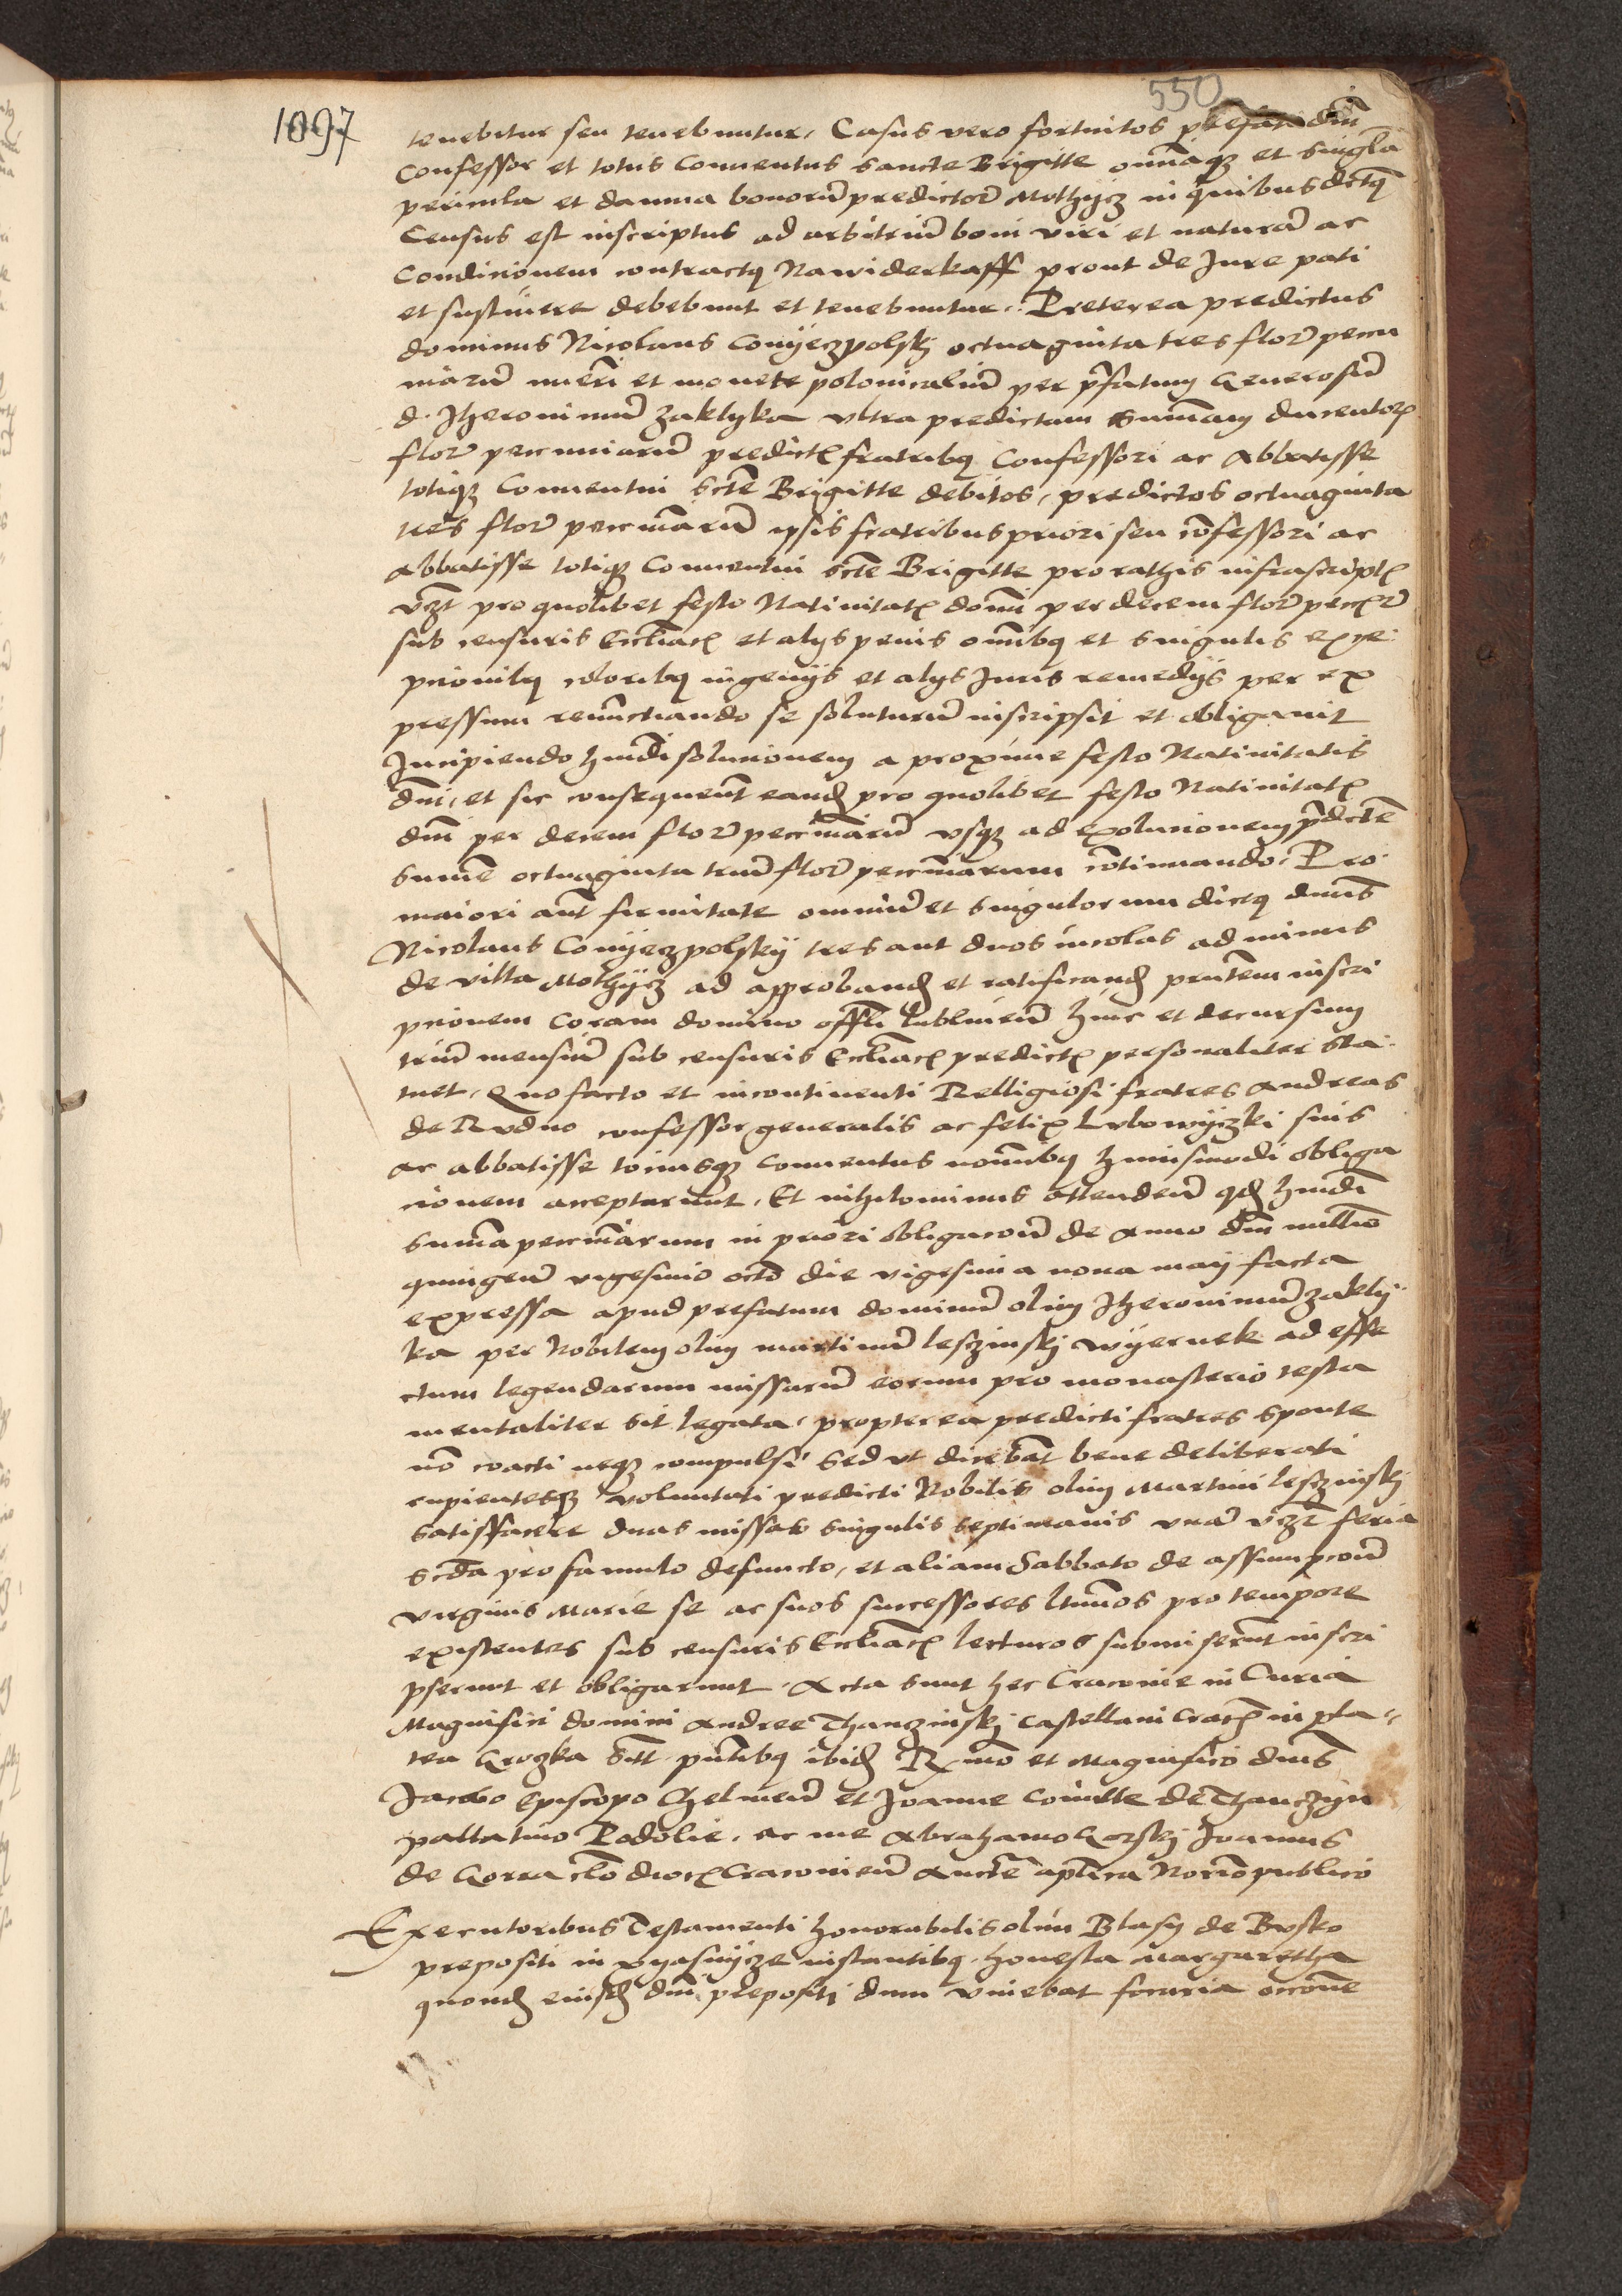 550
1097
tenebitur seu tenebuntur. Casus vero fortuitos prefati dni
Confessor et totus Conventus Sancte Brigitte omniaqz et singla
pericula et damna bonorum predictor Mothycz in quibus dictq
Census est inscriptus ad arbitrium boni viri et naturam ac
Condicionem contractq Nawiderkaff prout de Jure pati
et sustinere debebunt et tenebuntur. Preterea predictus
dominus Nicolaus Conyeczpolskj octuaginta tres flor pecu
niarum numeri et monete polonicalium per pfatum Generosum
d. Jheronimum Zaklyka vltra predictam Summam ducentor
flor pecuniarum predict fratribq Confessori ac Abbatisse
totiqz Conventui scte Brigitte debitos, predictos octuaginta
tres flor pecuniarum ipsis fratribus priori seu confessori ac
abbatisse totiqz Conventui scte Brigitte pro rathis infrascript
vzt pro quolibet festo Nativitat domi per decem flor peccar
sub censuris Ecclliac et alys penis omnibq et singulis exce
pcionibq coloribq ingenijs et alys Juris remedijs per ex
pressum renunctiando se soluturum inscripsit et obligavit
Incipiendo hmodi solucionem a proxime festo Nativitatis
dni, et sic consequent eand pro quolibet festo Nativitat
dni per decem flor pecuniarum vsqz ad exolucionem pdicte
summe octuaginta trium flor pecuniarum continuando. Pro
maiori aut firmitate omnium et singulorum dictq dnus
Nicolaus Conyeczpolskij tres aut duos incolas ad minus
de villa Mothycz ad approband et ratificand pntem inscri
pcionem coram domino offli lublinen hinc et decursum
trium mensium sub censuris Eccliac predict personaliter sta
tuet. Quo facto et incontinenti Relligiosi fratres Andreas
de Rvdno confessor generalis ac felix Lvbowyczki suis
ac abbatisse totiusqz Conventus nominibq huiusmodi obliga
cionem acceptarunt. Et nihilominus attendeu qd hmodi
summa pecuniarum in priori obligacion de Anno dni millio
quingen vigesimo octo die vigesima nona maij facta
expressa apud prefatum dominum olim Jheronimum Zakly
ka per Nobilem olim martinum leszinskj wyernek ad effe
ctum legendarum missarum eorum pro monasterio testa
mentaliter sit legata, propterea predicti fratres sponte
no coacti neqz compulsi sed vt dicebat bene deliberati
cupientesqz voluntati predicti Nobilis olim Martini leszinskj
satisfacere duas missas singulis septimanis vna vzt feria
scda pro famulo defuncto, et aliam Sabbato de assumpcion
virginis Marie se ac suos successores ltimos pro tempore
existentes sub censuris Eccliac lecturos submiserunt inscri
pserunt et obligarunt. Acta sunt hec Cracovie in Curia
Magnifici domini Andree Thanczinskj Castellani Crac in pla
tea Grozka Sitt pntibq ibid Rmo et Magnifico dnis
Jacobo Episcopo Chelmen et Joanne Comitte de Thanczyn
pallatino Podolie. ac me Abrahamo Gorskj Joannis
de Gorra clo dioc Cracovien Aucte aplica Notrio publico
Executoribus Testamenti honorabilis olim Blasy de Bvsko
prepositi in Vyasnycze instantibq honesta Margaretha
quond eiusd dni prepositj dum viuebat focaria